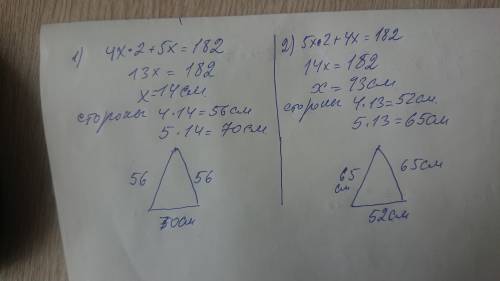 1) 4x·2+5x=182
13x = 182
x=14см
стороны 4·14=56см
5·14=70см
56
56
70см
2) 5x·2+4x=182
14x=182
x=13см
стороны 4·13=52см.
5·13=65см
65
см
65см
52см